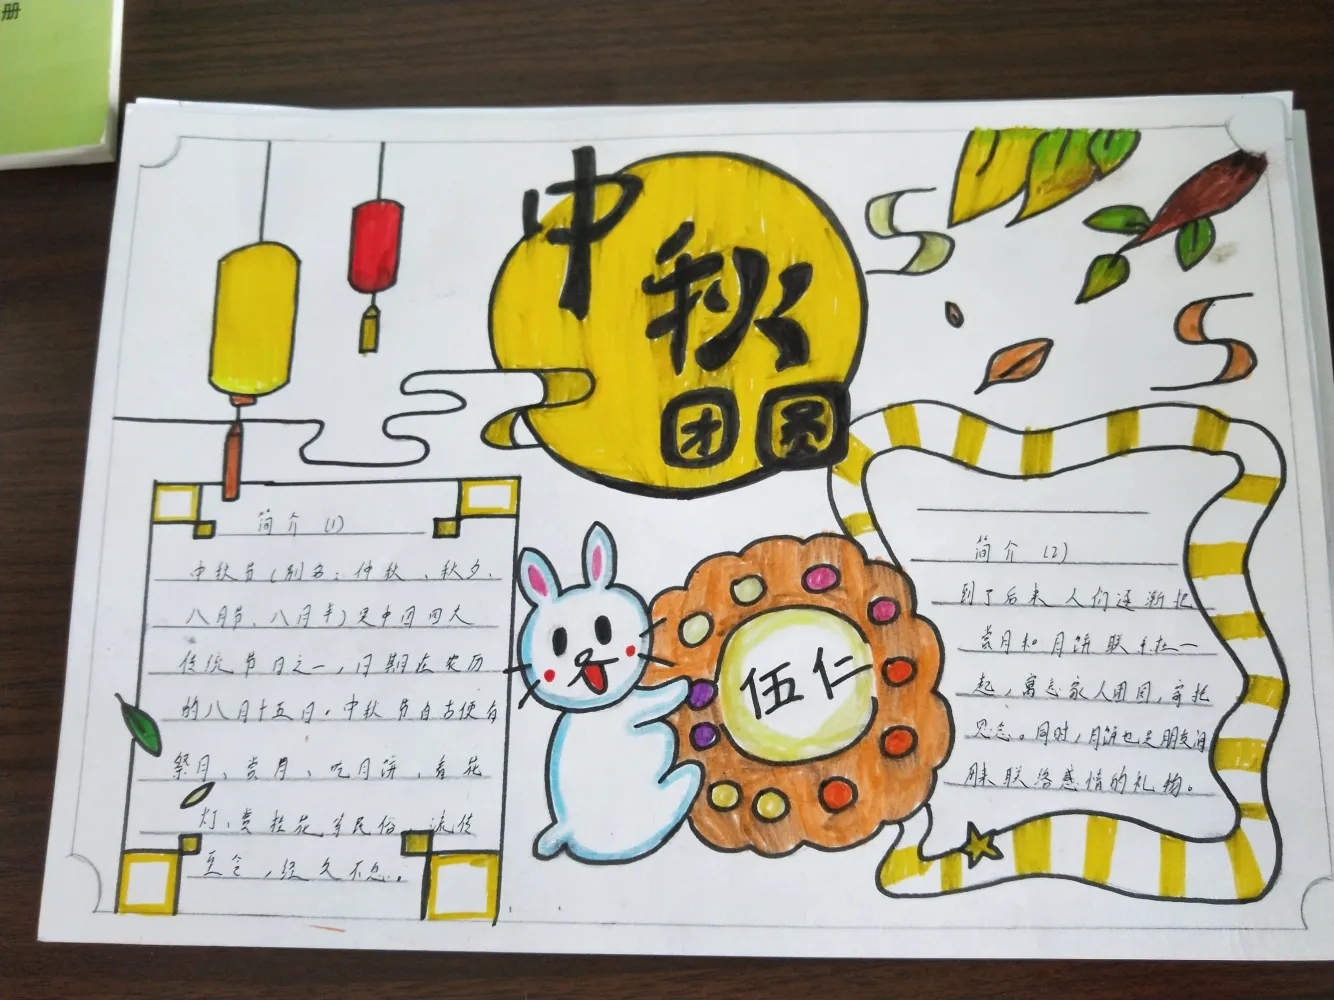 册
中秋
团圆
简介(1)
中秋节(别名:仲秋、秋夕、
八月节、八月半)是中国四大
传统节日之一,日期在农历
的八月十五日。中秋节自古便有
祭月、赏月、吃月饼、看花
灯、赏桂花等民俗,流传
至今,经久不息。
伍仁
简介(2)
到了后来人们逐渐把
赏月和月饼联系在一
起,寓意家人团圆,寄托
思念。同时,月饼也是朋友间
用来联络感情的礼物。